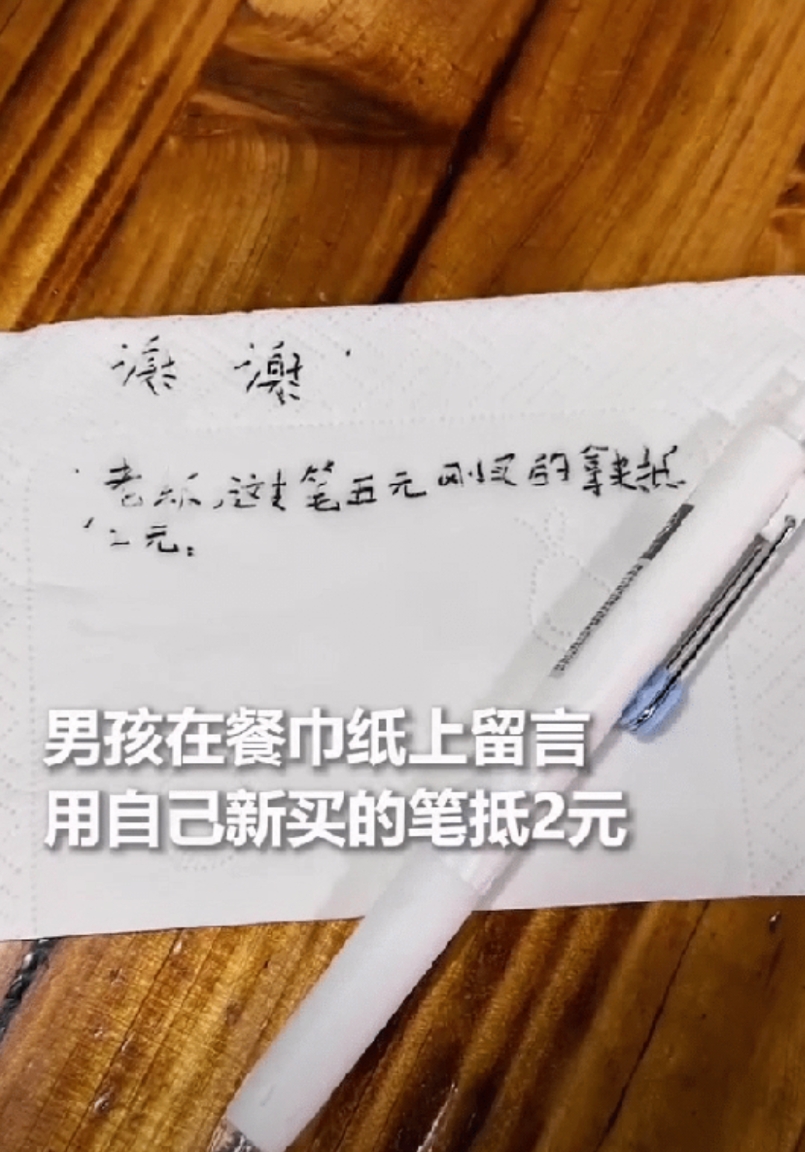 谢谢
老板,这支笔五元刚买的拿来抵
2元。
男孩在餐巾纸上留言
用自己新买的笔抵2元